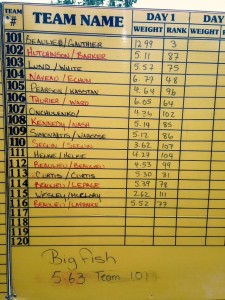 TEAM # TEAM NAME DAY 1 DAY
WEIGHT RANK WEIGHT
101 BEAULNE/GAUTHIER 12.99 3
102 HUTCHINSON/BARKER 5.11 87
103 LUND/WHITE 5.57 75
104 NAVEAU/ 6.77 48
105 PEARSON/ 4.64 96
106 THURIER/WARD 6.05 64
107 4.76 102
108 KENNEDY/NASH 5.14 85
109 5.12 86
110 SEGUIN/SEGUIN 3.62 107
111 HELKE/HELKIE 4.27 104
112 BEAULIEU/BEAULIEU 4.53 99
113 CURTIS/CURTIS 5.30 81
114 BEAULIEU/LEPAGE 5.39 78
115 WESLEY/ 2.62 111
116 BEAULIEU/ 5.52 77
117
118
119
120
Big Fish
5.63 Team 101